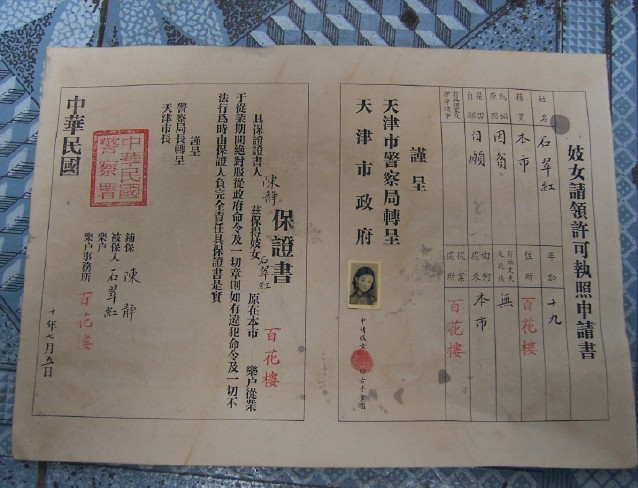 妓女請領許可執照申請書
姓名 石翠紅 年齡 十九
籍貫 本市 住所 百花樓
為娼原因 因貧 有無丈夫及親族 無
是否自願 自願 由何處來 本市
從業處所 百花樓
謹呈
天津市警察局轉呈
天津市政府
保證書
具保證書人 陳靜 茲保得妓女 石翠紅 原在本市 百花樓 樂户從業
于從業期間絕對服從政府命令及一切章則如有違犯命令及一切不
法行為時由保證人負完全責任具保證書是實
謹呈
警察局長轉呈
天津市長
中華民國警察署
鋪保 陳靜
被保人 石翠紅
樂户
樂户事務所 百花樓
中華民國
十年七月五日